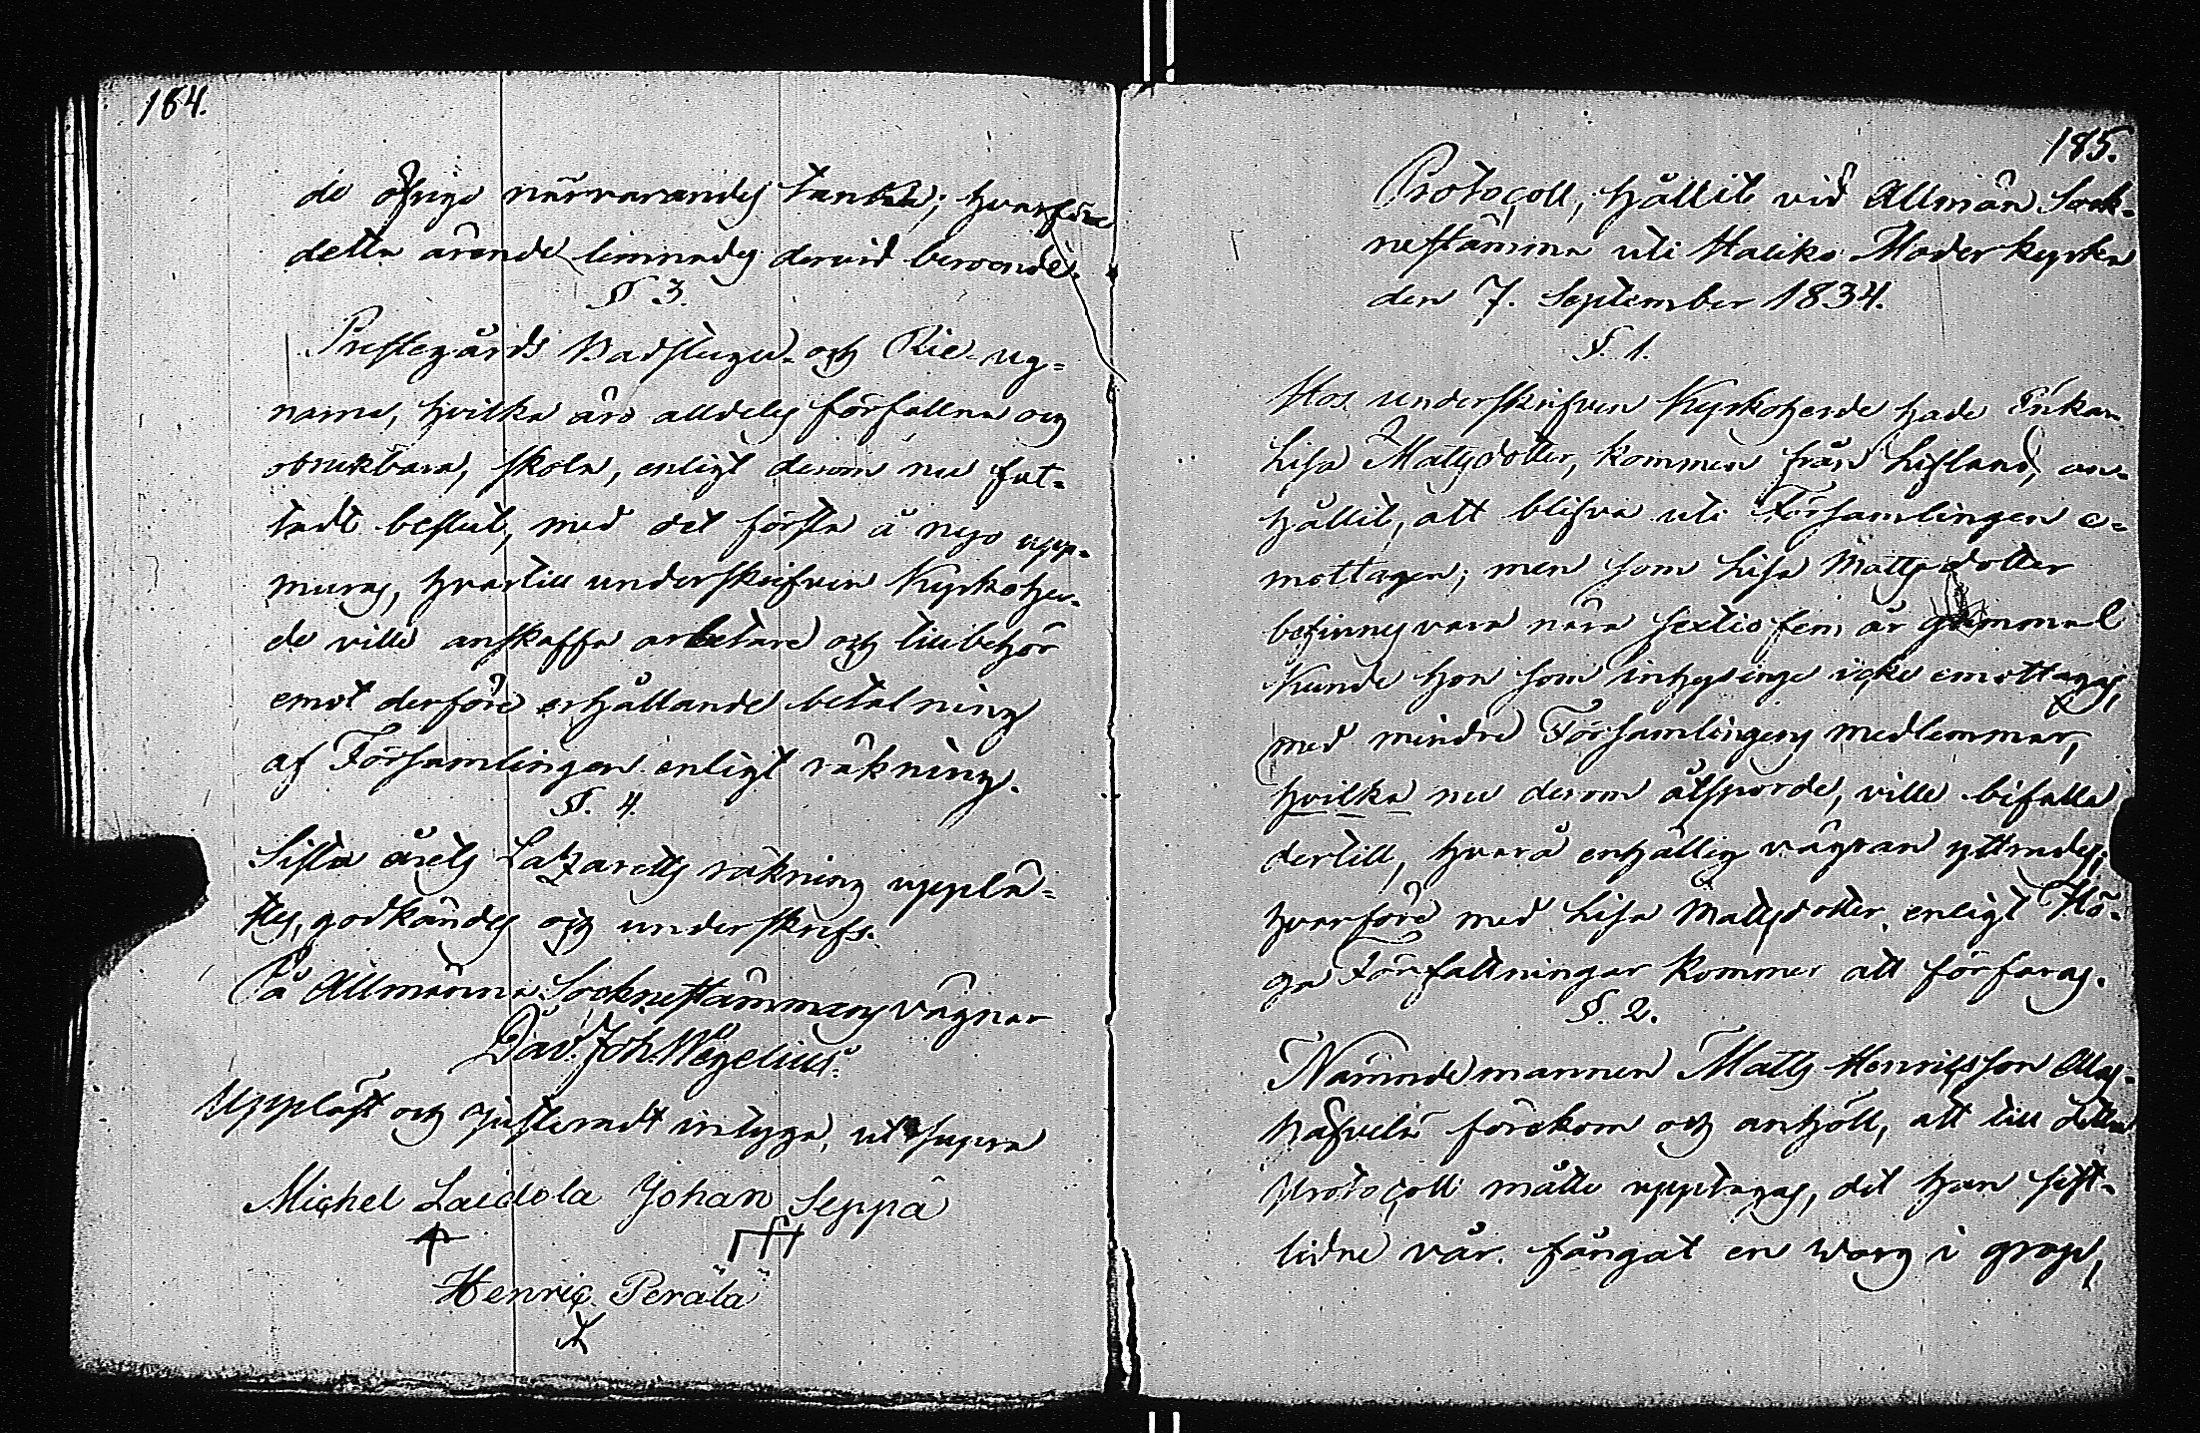 184.
de öfrige närvarandes tanka; hvarföre
detta ärende lemnades dervid beroende.
§ 3.
Prestegårds Badstugu- och Rie-ug-
narne, hvilka äro alldeles förfallna och
obrukbara, skola, enligt derom nu fat-
tadt beslut, med det första å nyo upp-
muras, hvartill underskrifven Kyrkoher-
de ville anskaffa arbetare och tillbehör
emot derföre erhållande betalning
af Församlingen enligt räkning.
§. 4.
Sista årets Lazaretts räkning upplä-
stes, godkändes och underskrefs.
På Allmänna Socknestämmans vägnar
Dav. Joh. Wegelius.
Uppläst och justeradt intyga, ut supra
Michel Laidola Johan Seppä
Henric Perälä
185.
Protocoll, hållit vid Allmän Sock-
nestämma uti Haliko Moderkyrka
den 7. September 1834.
§. 1.
Hos underskrifven Kyrkoherde hade Enkan
Lisa Mattsdotter, kommen från Lifland, an-
hållit, att blifva uti Församlingen e-
mottagen; men som Lisa Mattsdotter
befinnes vara nära sextio fem år gammal
kunde hon som inhysinge icke emottagas,
med mindre Församlingens medlemmar,
hvilka nu derom åtsporde, ville bifalla
dertill, hvarå enhällig vägran yttrades;
hvarföre med Lisa Mattsdotter enligt Hö-
ga Författningar kommer att förfaras.
§. 2.
Nämndemannen Matts Henricsson
förekom och anhöll, att till detta
Protocoll måtte upptagas, det han sist-
lidne vår fångat en Warg i grop,